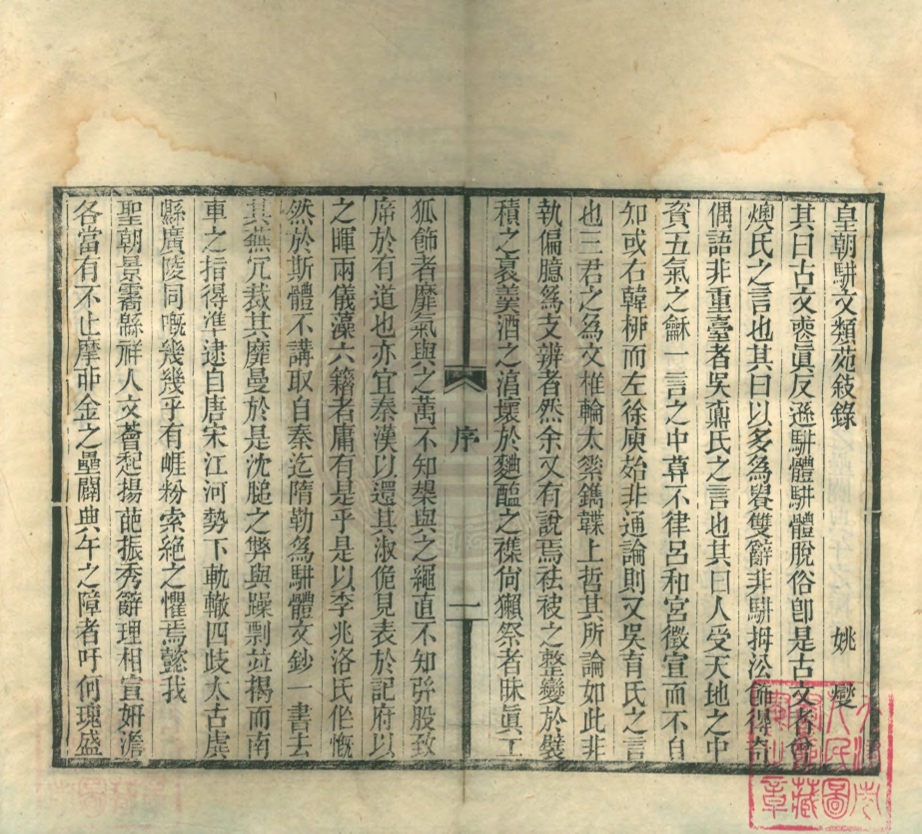 皇朝駢文類苑敍錄
姚燮
其曰古文喪眞反遜駢體駢體脫俗卽是古文者曾
燠氏之言也其曰以多爲貴雙辭非駢拇沿飾得奇
偶語非重臺者吳鼒氏之言也其曰人受天地之中
資五氣之龢一言之中莫不律呂和宮徵宣而不自
知或右韓栁而左徐庾始非通論則又吳育氏之言
也三君之為文椎輪大輅鐫鞢上哲其所論如此非
執偏臆爲支辨者然余又有說焉袪被之整變於襞
積之裏羙酒之滀壞於麯醖之襍尙獺祭者昧眞工
狐飾者靡氣與之萬不知槼與之繩直不知筓股致
席於有道也亦宜秦漢以還其淑佹見表於記府以
之暉兩儀藻六籍者庸有是乎是以李兆洛氏作慨
然於斯體不講取自秦迄隋勒爲駢體文鈔一書去
其蕪宂裁其靡曼於是沈膇之弊與躁剽竝揭而南
車之指得準逮自唐宋江河勢下軌轍四歧太古虞
縣廣陵同嘅幾幾乎有崕粉索絕之懼焉懿我
聖朝景霱縣祥人文薈起揚葩振秀辭理相宣妍澹
各當有不止摩丣金之壘闢典午之障者吁何瑰盛
序
一